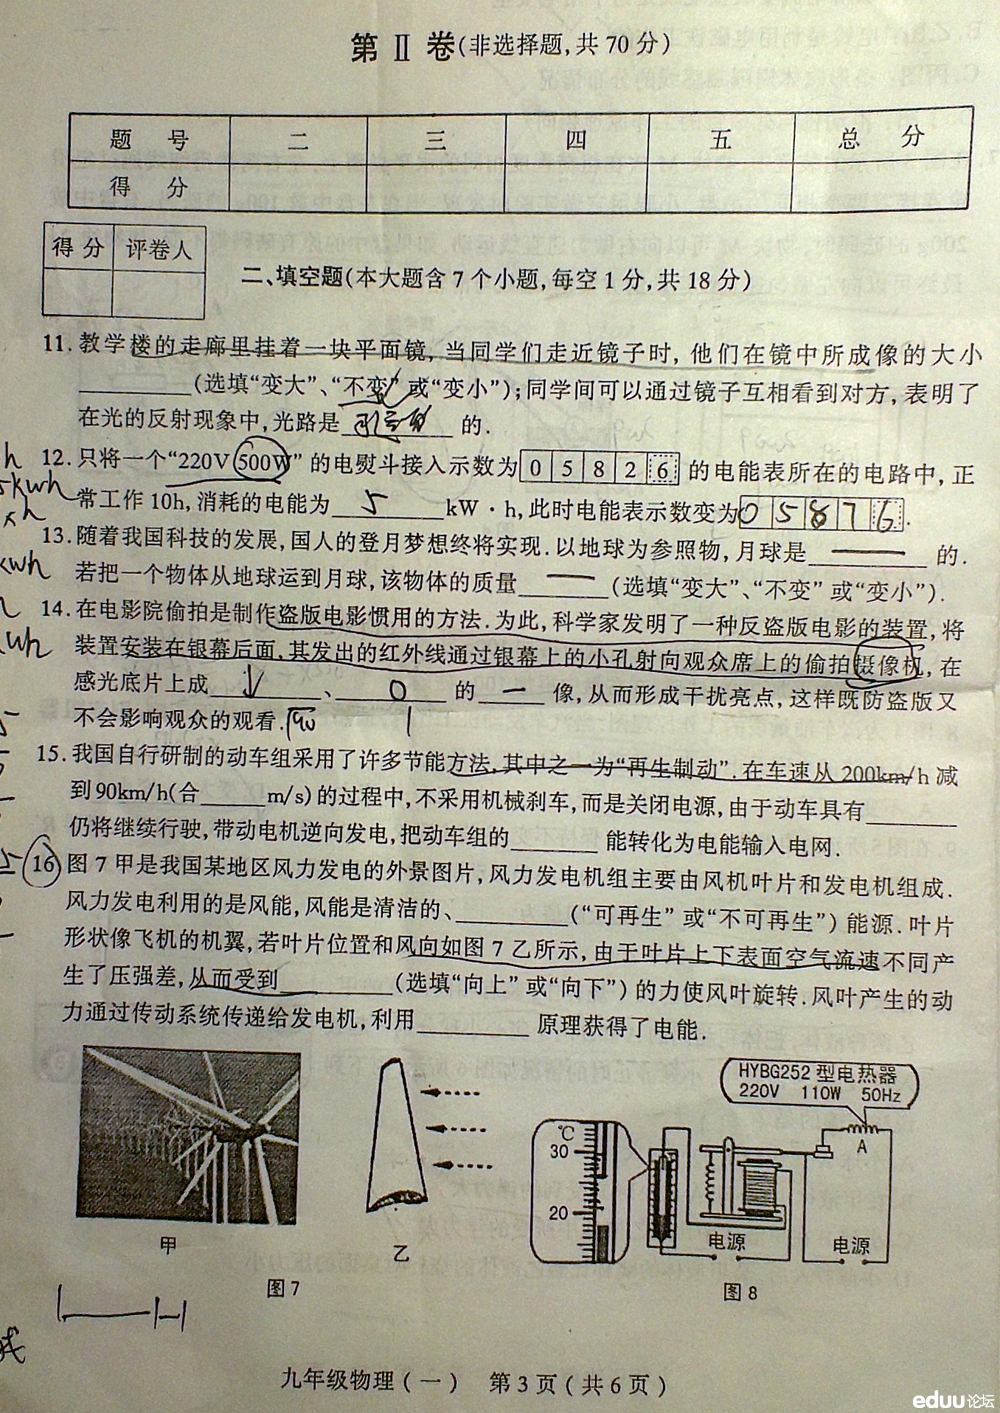 第Ⅱ卷(非选择题,共70分)
题 号 二 三 四 五 总 分
得 分
得分 评卷人
二、填空题(本大题含7个小题,每空1分,共18分)
11.教学楼的走廊里挂着一块平面镜,当同学们走近镜子时,他们在镜中所成像的大小
________(选填“变大”、“不变”或“变小”);同学间可以通过镜子互相看到对方,表明了
在光的反射现象中,光路是________的.
12.只将一个“220V 500W”的电熨斗接入示数为 0 5 8 2 6 的电能表所在的电路中,正
常工作10h,消耗的电能为 5 kW·h,此时电能表示数变为 0 5 8 7 6 .
13.随着我国科技的发展,国人的登月梦想终将实现.以地球为参照物,月球是________的.
若把一个物体从地球运到月球,该物体的质量________(选填“变大”、“不变”或“变小”).
14.在电影院偷拍是制作盗版电影惯用的方法.为此,科学家发明了一种反盗版电影的装置,将
装置安装在银幕后面,其发出的红外线通过银幕上的小孔射向观众席上的偷拍摄像机,在
感光底片上成________、________的____像,从而形成干扰亮点,这样既防盗版又
不会影响观众的观看.
15.我国自行研制的动车组采用了许多节能方法,其中之一为“再生制动”.在车速从200km/h减
到90km/h(合_____m/s)的过程中,不采用机械刹车,而是关闭电源,由于动车具有________
仍将继续行驶,带动电机逆向发电,把动车组的________能转化为电能输入电网.
16 图7甲是我国某地区风力发电的外景图片,风力发电机组主要由风机叶片和发电机组成.
风力发电利用的是风能,风能是清洁的、________(“可再生”或“不可再生”)能源.叶片
形状像飞机的机翼,若叶片位置和风向如图7乙所示,由于叶片上下表面空气流速不同产
生了压强差,从而受到________(选填“向上”或“向下”)的力使风叶旋转.风叶产生的动
力通过传动系统传递给发电机,利用________原理获得了电能.
HYBG252型电热器
220V 110W 50Hz
℃
30
20
A
电源
电源
甲
乙
图7
图8
九年级物理(一) 第3页(共6页)
eduu论坛